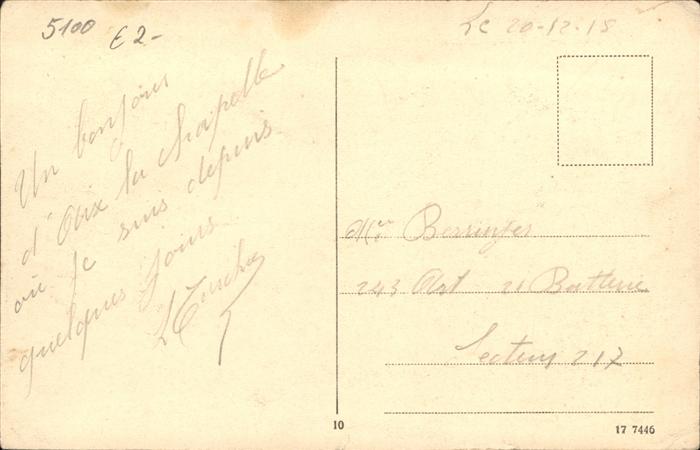 5100 € 2-
Le 20-12-18
Un bonjour
d'Aix la Chapelle
où je suis depuis
quelques jours
Mr
243 Art 21 Batterie
Secteur 217
10
17 7446